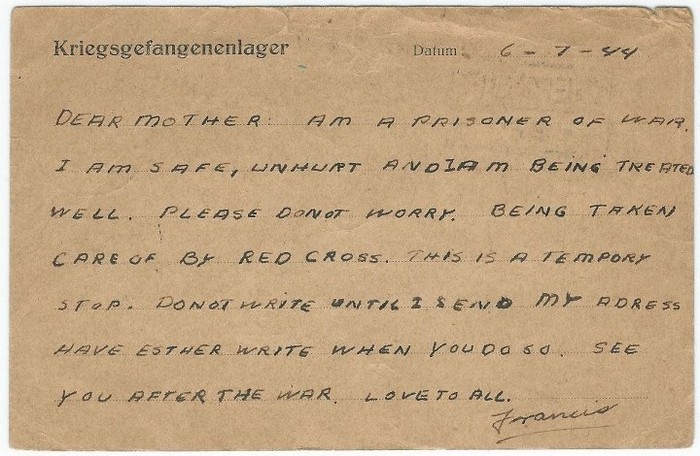 Kriegsgefangenenlager Datum: 6-7-44
DEAR MOTHER: AM A PRISONER OF WAR.
I AM SAFE, UNHURT AND I AM BEING TREATED
WELL. PLEASE DONOT WORRY. BEING TAKEN
CARE OF BY RED CROSS. THIS IS A TEMPORY
STOP. DONOT WRITE UNTIL I SEND MY ADRESS
HAVE ESTHER WRITE WHEN YOU DO SO. SEE
YOU AFTER THE WAR. LOVE TO ALL.
Francis